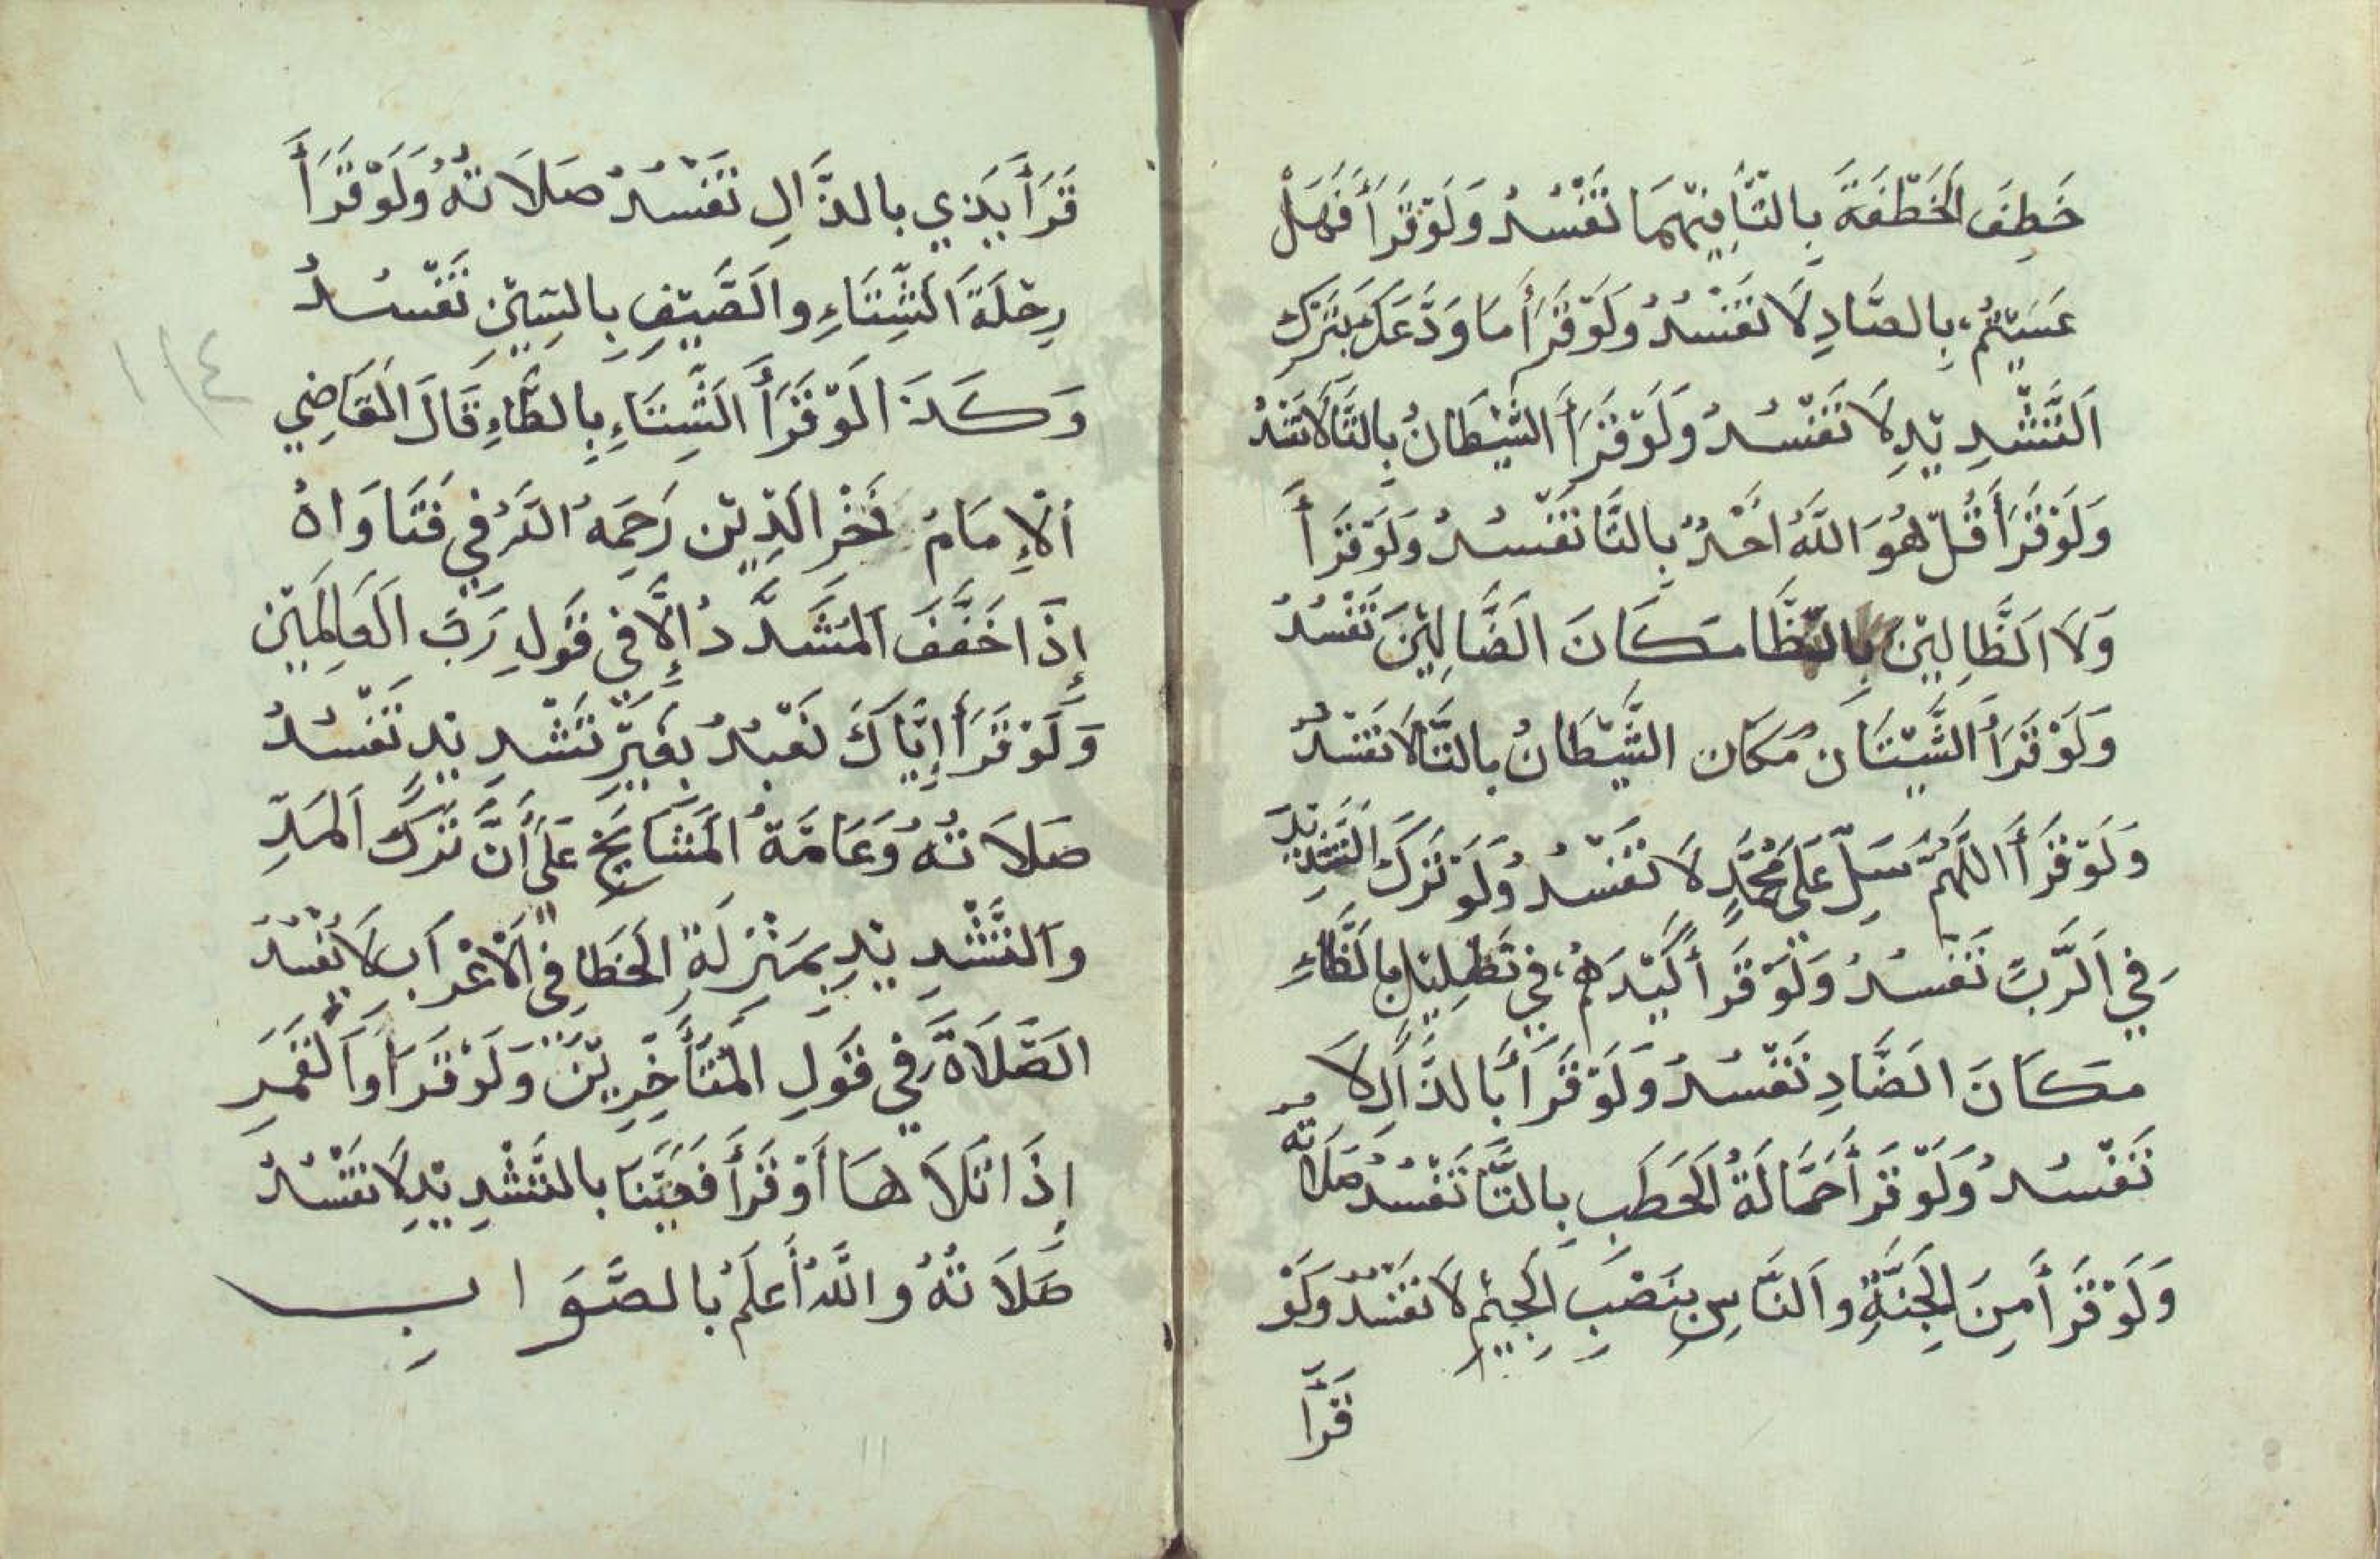 خَطِفَ الْخَطْفَةَ بِالتَّاءِ فِيهِمَا تَفْسُدُ وَلَوْ قَرَأَ فَهَلْ
عَسَيْتُمْ بِالصَّادِ لَا تَفْسُدُ وَلَوْ قَرَأَ مَا وَدَّعَكَ بِتَرْكِ
التَّشْدِيدِ لَا تَفْسُدُ وَلَوْ قَرَأَ الشَّيْطَانُ بِالتَّا لَا تَفْسُدُ
وَلَوْ قَرَأَ قُلْ هُوَ اللَّهُ أَحَدٌ بِالتَّا تَفْسُدُ وَلَوْ قَرَأَ
وَلَا الظَّالِينَ بِالظَّا مَكَانَ الضَّالِّينَ تَفْسُدُ
وَلَوْ قَرَأَ الشَّيْتَانِ مَكَان الشَّيْطَانُ بِالتَّا لَا تَفْسُدُ
وَلَوْ قَرَأَ اللَّهُمَّ سَلِّ عَلَى مُحَمَّدٍ لَا تَفْسُدُ وَلَوْ تَرَكَ التَّشْدِيدَ
فِي الرَّبِّ تَفْسُدُ وَلَوْ قَرَأَ كَيْدَهُمْ فِي تَظْلِيلٍ بِالظَّاءِ
مَكَانَ الضَّادِ تَفْسُدُ وَلَوْ قَرَأَ بِالذَّالِ لَا
تَفْسُدُ وَلَوْ قَرَأَ حَمَّالَةُ الْحَطَبِ بِالتَّا تَفْسُدُ صَلَاتُهُ
وَلَوْ قَرَأَ مِنَ الْجِنَّةِ وَالنَّاسِ بِنَصْبِ الْجِيمِ لَا تَفْسُدُ وَلَوْ
قَرَأَ
قَرَأَ يَذِي بِالذَّالِ تَفْسُدُ صَلَاتُهُ وَلَوْ قَرَأَ
رِحْلَةَ الشِّتَاءِ وَالصَّيْفِ بِالسِّينِ تَفْسُدُ
وَكَذَا لَوْ قَرَأَ الشِّتَاءِ بِالطَّاءِ قَالَ الْقَاضِي
الْإِمَامُ فَخْرُ الدِّينِ رَحِمَهُ اللَّهُ فِي فَتَاوَاهُ
إِذَا خَفَّفَ الْمُشَدَّدُ إِلَّا فِي قَوْلِ رَبِّ الْعَالَمِينَ
وَلَوْ قَرَأَ إِيَّاكَ نَعْبُدُ بِغَيْرِ تَشْدِيدٍ تَفْسُدُ
صَلَاتُهُ وَعَامَّةُ الْمَشَايِخِ عَلَى أَنَّ تَرْكَ الْمَدِّ
وَالتَّشْدِيدِ بِمَنْزِلَةِ الْخَطَأِ فِي الْأَعْرَابِ لَا يُفْسِدُ
الصَّلَاةَ فِي قَوْلِ الْمُتَأَخِّرِينَ وَلَوْ قَرَأَ وَالْقَمَرِ
إِذَا تَلَاهَا أَوْ قَرَأَ أَفَعَيِّنَا بِالتَّشْدِيدِ لَا تَفْسُدُ
صَلَاتُهُ وَاللَّهُ أَعْلَمُ بِالصَّوَابِ